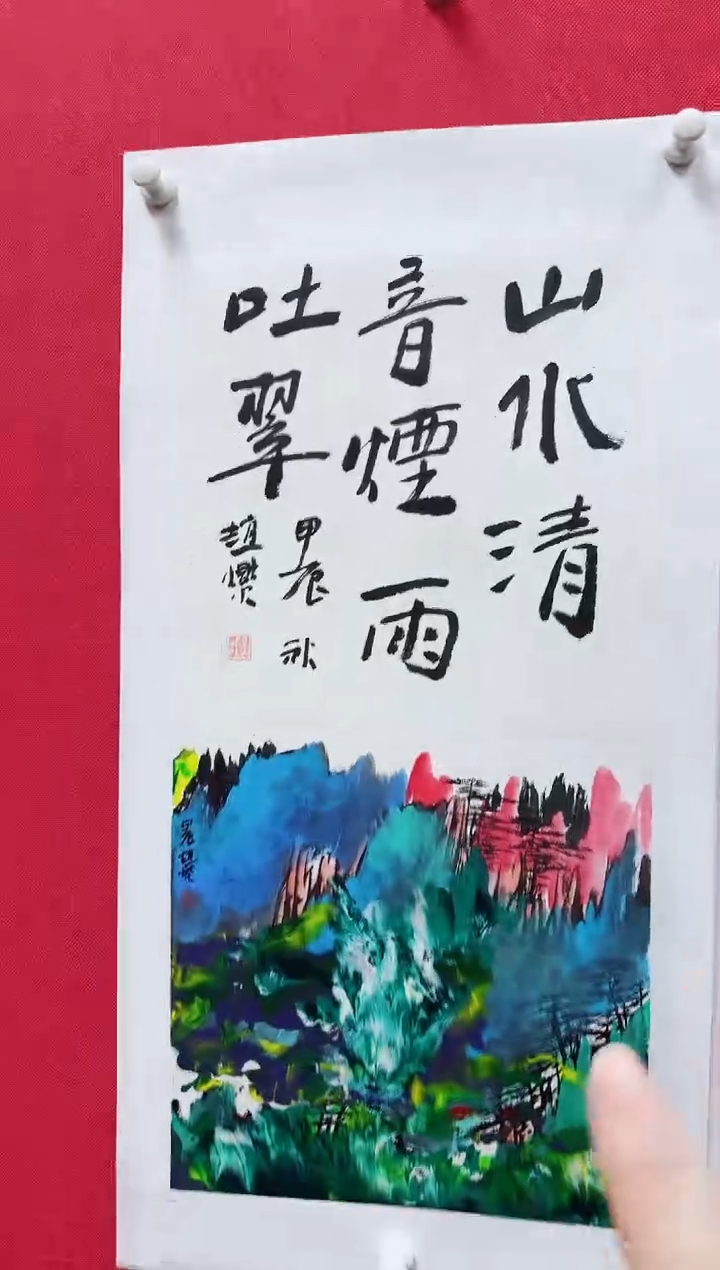 山水清
音煙雨
吐翠
甲辰秋